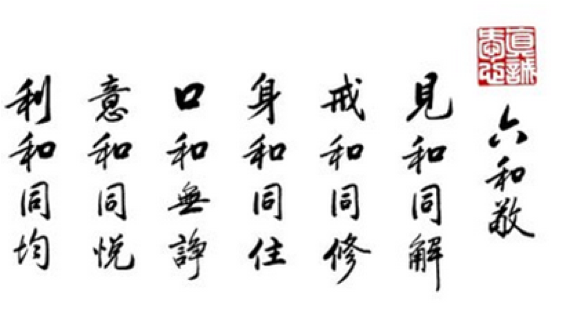 真誠
六和敬
見和同解
戒和同修
身和同住
口和無諍
意和同悅
利和同均